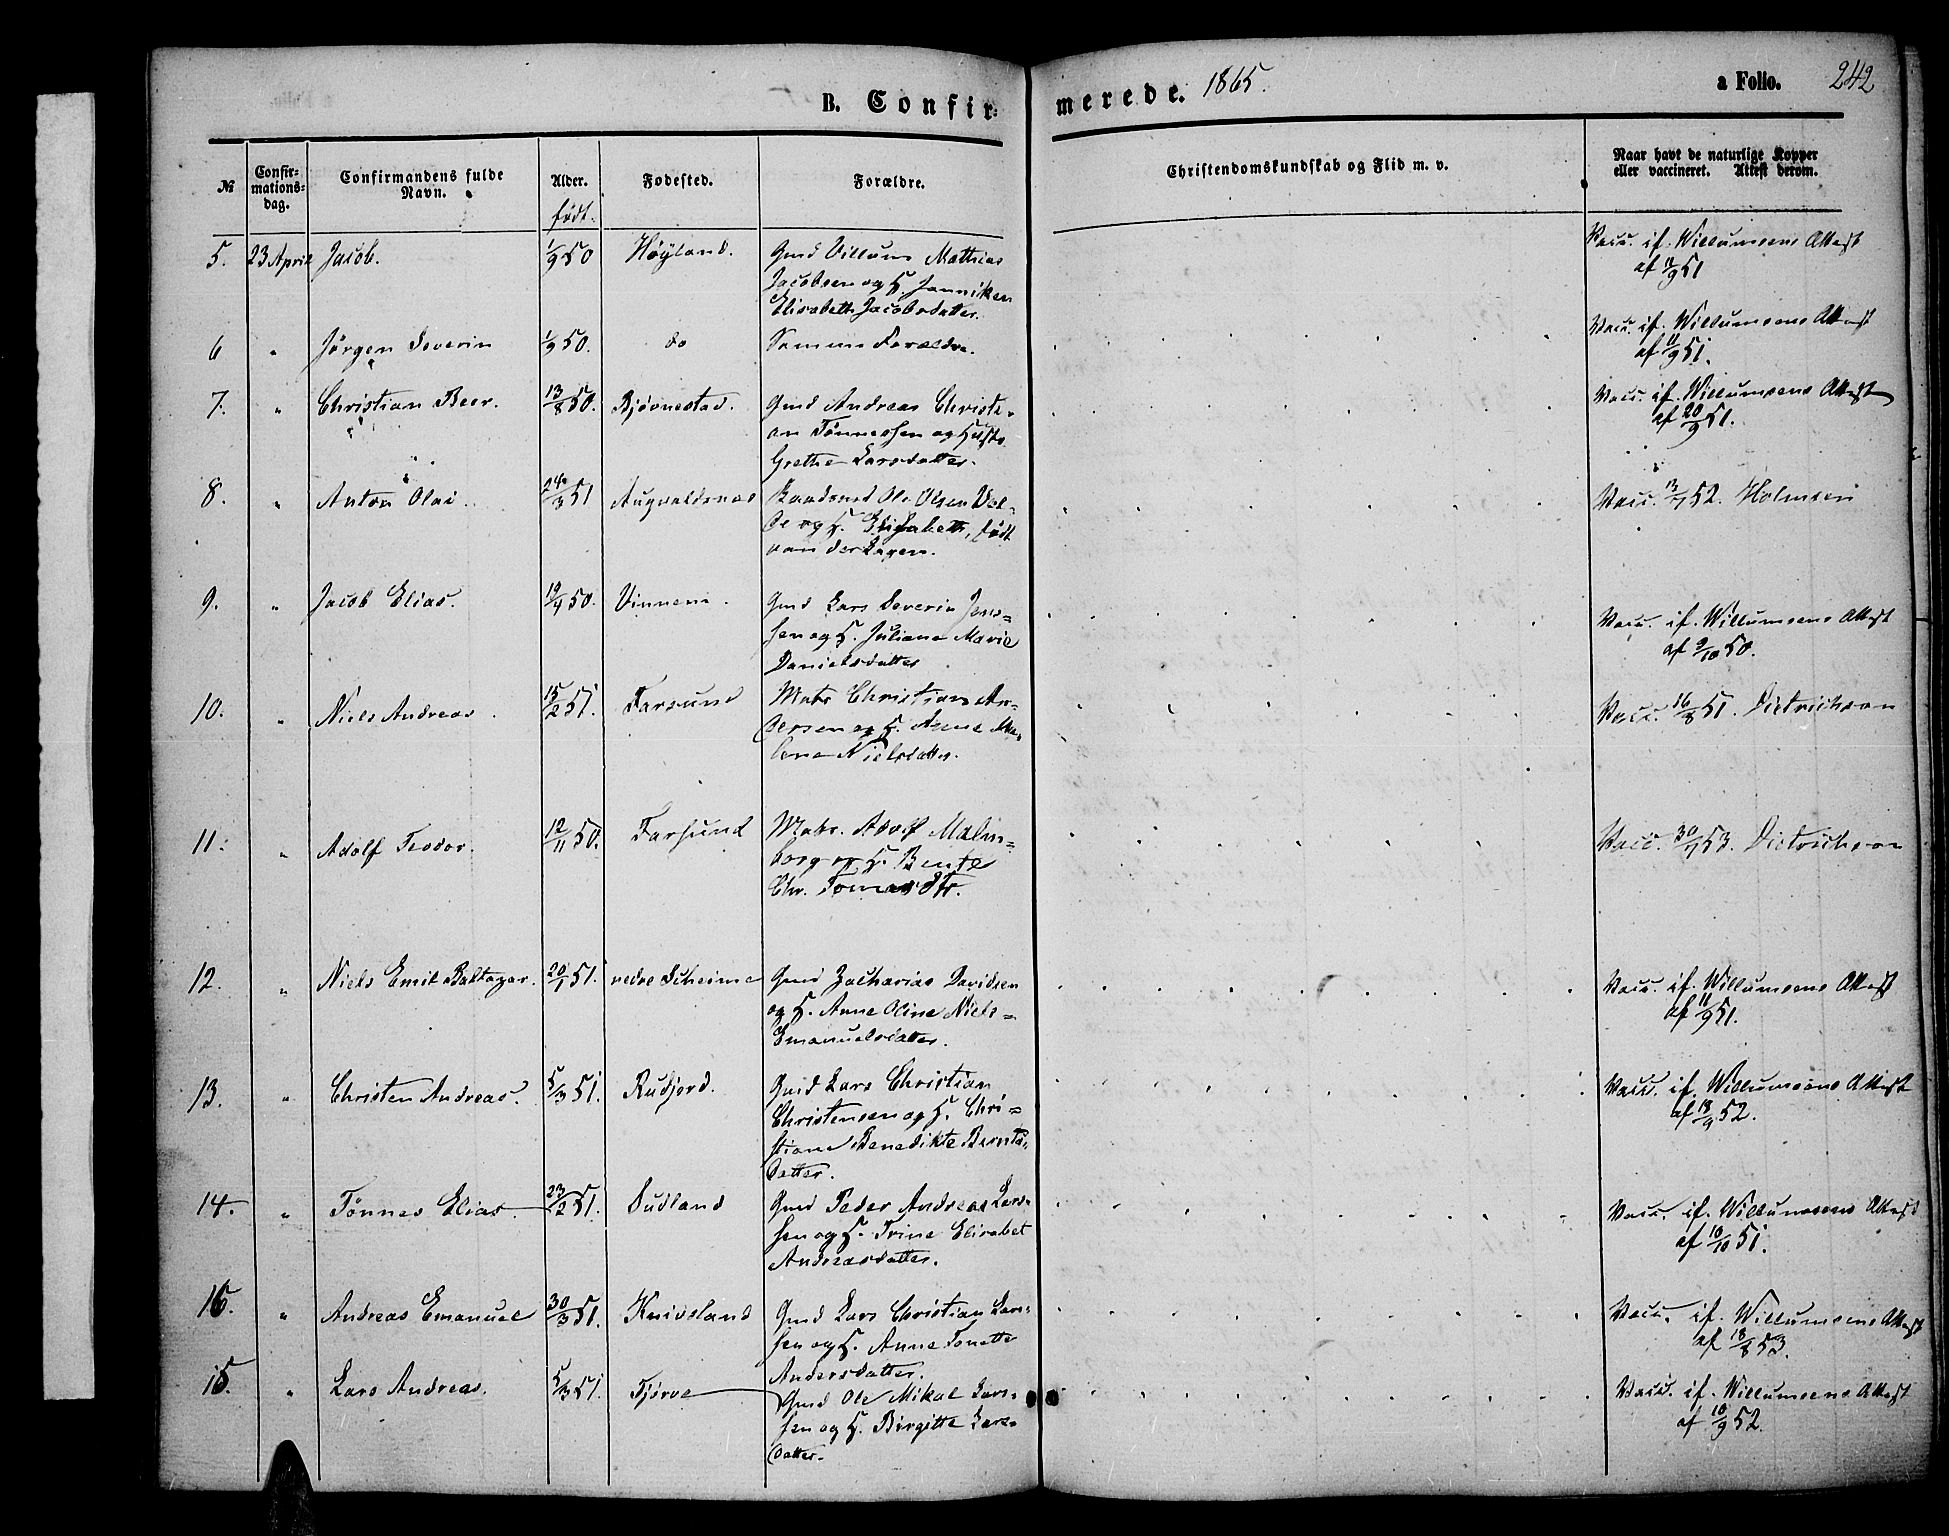 B. Confirmerede. 1865. a Folio. 242
No Confirmationsdag. Confirmandens fulde Navn. Alder. født. Fødested. Forældre. Christendomskundskab og Flid m. v. Naar havt de naturlige Kopper eller vaccineret. Attest derom.
5. 23 April Jacob. 1/9 50 Høyland. Gmd Villum Mathias
Jacobsen og H. Janniken
Elisabeth Jacobsdatter.
Vacc. if. Willumsens Attest
af 11/9 51
6 " Jørgen Severin 1/9 50. do Samme Forældre.
Vacc. if. Willumsens Attest
af 11/9 51.
7. " Christian Beer. 13/8 50. Bjørnestad. Gmd Andreas Christi-
an Tønnessen og Hust.
Grethe Larsdatter.
Vacc. if. Willumsens Attest
af 20/9 51.
8. " Anton Olai. 24/3 51 Augvaldsnes Ole Olsen
og H. Elisabeth, født
van der Lagen.
Vacc. 13/7 52. Holmsen
9. " Jacob Elias. 19/4 50. Vinnem. Gmd Lars Severin Jens-
sen og H. Juliane Marie
Danielsdatter
Vacc. if. Willumsens Attest
af 9/10 50.
10. " Niels Andreas. 15/2 51. Farsund Matr Christian An-
dersen og H. Anne Ma-
lene Nielsdatter.
Vacc. 16/8 51. Dietrichson
11. " Adolf Teodor. 12/11 50. Farsund Matr. Adolf Malm-
borg og H. Bente
Chr. Tomasdtr.
Vacc. 30/7 53. Dietrichson
12. " Niels Emil Baltazar. 20/1 51. nedre Skeime Gmd Zacharias Davidsen
og H. Anne Oline Niels-
Emanuelsdatter.
Vacc. if. Willumsens Attest
af 11/9 51.
13. " Christen Andreas. 5/3 51. Rudjord. Gmd Lars Christian
Christensen og H. Chri-
stiane Benedikte Bernts-
datter.
Vacc. if. Willumsens Attest
af 18/9 52.
14. " Tønnes Elias. 23/2 51. Sudland Gmd Peder Andreas Lars-
sen og H. Trine Elisabet
Andreasdatter.
Vacc. if. Willumsens Attest
af 10/10 51.
16. " Andreas Emanuel 30/3 51. Knivsland Gmd Lars Christian Lars-
sen og H. Anne Tonette
Andersdatter.
Vacc. if. Willumsens Attest
af 18/8 53.
15. " Lars Andreas. 5/3 51. Tjørve Gmd Ole Mikal Lars-
sen og H. Birgitte Lars-
datter.
Vacc. if. Willumsens Attest
af 10/9 52.